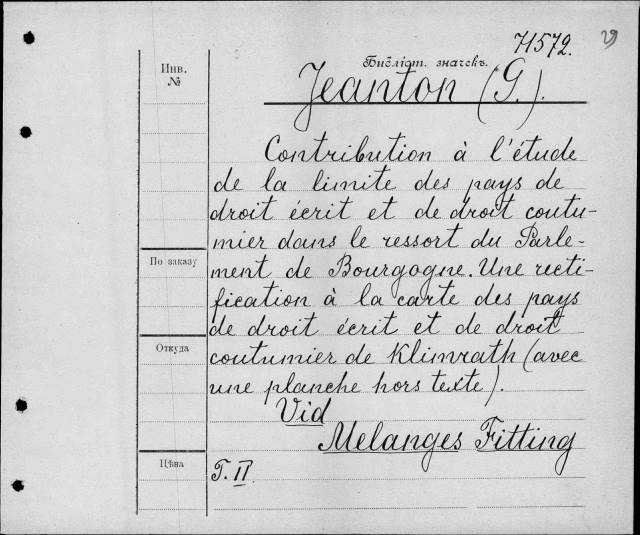 71572.
29
Инв.
№
Библіот. значекъ.
Jeanton (G.).
Contribution à l'étude
de la limite des pays de
droit écrit et de droit coutu-
mier dans le ressort du Parle-
ment de Bourgogne. Une recti-
fication à la carte des pays
de droit écrit et de droit
coutumier de Klimrath (avec
une planche hors texte).
Vid
Melanges Fitting
T. II.
По заказу
Откуда
Цѣна